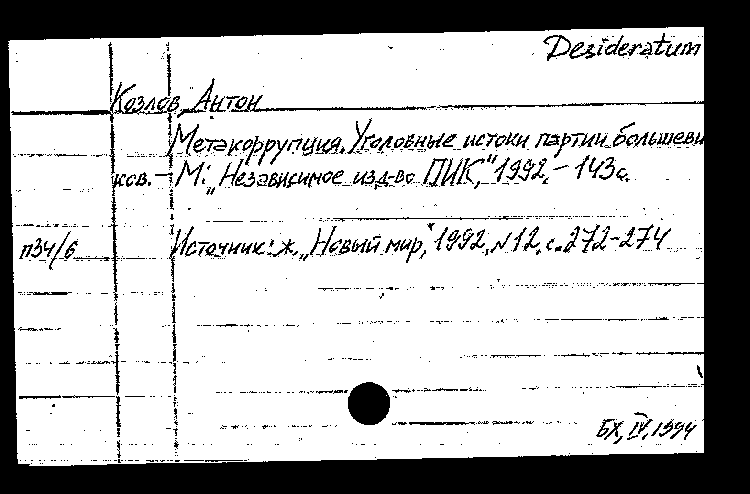 Desideratum
Козлов, Антон
Метакоррупция. Уголовные истоки партии большеви
ков. – М: „Независимое изд-во ПИК," 1992. – 143 с.
п34/6 Источник: ж. „Новый мир," 1992, N 12, с. 272-274
БХ, IV, 1994